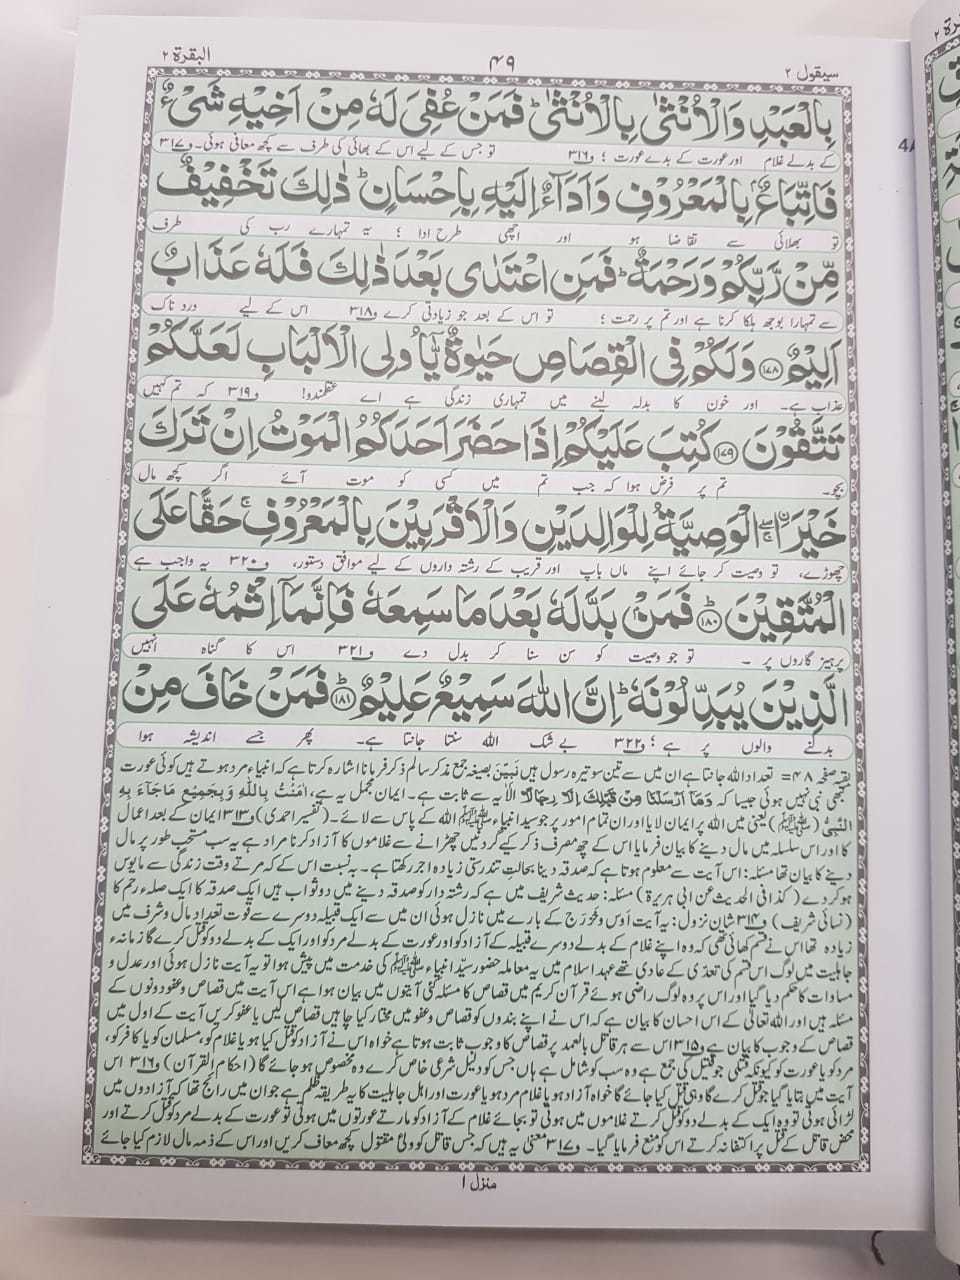 سیقول ۲
۴۹
البقرة ۲
بِالْعَبْدِ وَالْاُنْثٰى بِالْاُنْثٰى ؕ فَمَنْ عُفِیَ لَهٗ مِنْ اَخِیْهِ شَیْءٌ
کے بدلے غلام اور عورت کے بدلے عورت ؛ و۳۱۶ تو جس کے لیے اس کے بھائی کی طرف سے کچھ معافی ہوئی۔ و۳۱۷
فَاتِّبَاعٌۢ بِالْمَعْرُوْفِ وَاَدَآءٌ اِلَیْهِ بِاِحْسَانٍ ؕ ذٰلِكَ تَخْفِیْفٌ
تو بھلائی سے تقاضا ہو اور اچھی طرح ادا ؛ یہ تمہارے رب کی طرف
مِّنْ رَّبِّكُمْ وَرَحْمَةٌ ؕ فَمَنِ اعْتَدٰى بَعْدَ ذٰلِكَ فَلَهٗ عَذَابٌ
سے تمہارا بوجھ ہلکا کرنا ہے اور تم پر رحمت ؛ تو اس کے بعد جو زیادتی کرے و۳۱۸ اس کے لیے درد ناک
اَلِیْمٌ ﴿۱۷۸﴾ وَلَكُمْ فِی الْقِصَاصِ حَیٰوةٌ یّٰۤاُولِی الْاَلْبَابِ لَعَلَّكُمْ
عذاب ہے۔ اور خون کا بدلہ لینے میں تمہاری زندگی ہے اے عقلمندو! و۳۱۹ کہ تم کہیں
تَتَّقُوْنَ ﴿۱۷۹﴾ كُتِبَ عَلَیْكُمْ اِذَا حَضَرَ اَحَدَكُمُ الْمَوْتُ اِنْ تَرَكَ
بچو۔ تم پر فرض ہوا کہ جب تم میں کسی کو موت آئے اگر کچھ مال
خَیْرَا ۖۚ الْوَصِیَّةُ لِلْوَالِدَیْنِ وَالْاَقْرَبِیْنَ بِالْمَعْرُوْفِ ۚ حَقًّا عَلَى
چھوڑے، تو وصیت کر جائے اپنے ماں باپ اور قریب کے رشتہ داروں کے لیے موافق دستور، و۳۲۰ یہ واجب ہے
الْمُتَّقِیْنَ ﴿۱۸۰﴾ فَمَنْۢ بَدَّلَهٗ بَعْدَ مَا سَمِعَهٗ فَاِنَّمَاۤ اِثْمُهٗ عَلَى
پرہیز گاروں پر ۔ تو جو وصیت کو سن سنا کر بدل دے و۳۲۱ اس کا گناہ انہیں
الَّذِیْنَ یُبَدِّلُوْنَهٗ ؕ اِنَّ اللّٰهَ سَمِیْعٌ عَلِیْمٌ ﴿۱۸۱﴾ فَمَنْ خَافَ مِنْ
بدلنے والوں پر ہے ؛ و۳۲۲ بے شک اللہ سنتا جانتا ہے۔ پھر جسے اندیشہ ہوا
بقیہ صفحہ ۴۸ = تعداد اللہ جانتا ہے ان میں سے تین سو تیرہ رسول ہیں نَبِیّٖنَ بصیغہ جمع مذکر سالم ذکر فرمانا اشارہ کرتا ہے کہ انبیاء مرد ہوتے ہیں کوئی عورت
کبھی نبی نہیں ہوئی جیسا کہ وَمَاۤ اَرْسَلْنَا مِنْ قَبْلِكَ اِلَّا رِجَالًا الآیہ سے ثابت ہے۔ ایمان مجمل یہ ہے، اٰمَنْتُ بِاللّٰهِ وَبِجَمِیْعِ مَاجَآءَ بِهِ
النَّبِیُّ (ﷺ) یعنی میں اللہ پر ایمان لایا اور ان تمام امور پر جو سید انبیاء ﷺ اللہ کے پاس سے لائے۔ (تفسیر احمدی) و۳۱۳ ایمان کے بعد اعمال
کا اور اس سلسلہ میں مال دینے کا بیان فرمایا اس کے چھ مصرف ذکر کیے گردنیں چھڑانے سے غلاموں کا آزاد کرنا مراد ہے یہ سب مستحب طور پر مال
دینے کا بیان تھا مسئلہ: اس آیت سے معلوم ہوتا ہے کہ صدقہ دینا بحالت تندرستی زیادہ اجر رکھتا ہے۔ بہ نسبت اس کے کہ مرتے وقت زندگی سے مایوس
ہو کر دے (کذا فی الحدیث عن ابی ہریرۃ) مسئلہ: حدیث شریف میں ہے کہ رشتہ دار کو صدقہ دینے میں دو ثواب ہیں ایک صدقہ کا ایک صلہ رحم کا
(نسائی شریف) و۳۱۴ شان نزول: یہ آیت اَوس و خَزرَج کے بارے میں نازل ہوئی ان میں سے ایک قبیلہ دوسرے سے قوت تعداد مال و شرف میں
زیادہ تھا اس نے قسم کھائی تھی کہ وہ اپنے غلام کے بدلے دوسرے قبیلہ کے آزاد کو اور عورت کے بدلے مرد کو اور ایک کے بدلے دو کو قتل کرے گا زمانہء
جاہلیت میں لوگ اس قسم کی تعدّی کے عادی تھے عہد اسلام میں یہ معاملہ حضور سیّد انبیاء ﷺ کی خدمت میں پیش ہوا تو یہ آیت نازل ہوئی اور عدل و
مساوات کا حکم دیا گیا اور اس پر وہ لوگ راضی ہوئے قرآن کریم میں قصاص کا مسئلہ کئی آیتوں میں بیان ہوا ہے اس آیت میں قصاص و عفو دونوں کے
مسئلہ ہیں اور اللہ تعالیٰ کے اس احسان کا بیان ہے کہ اس نے اپنے بندوں کو قصاص و عفو میں مختار کیا چاہیں قصاص لیں یا عفو کریں آیت کے اول میں
قصاص کے وجوب کا بیان ہے و۳۱۵ اس سے ہر قاتل بالعمد پر قصاص کا وجوب ثابت ہوتا ہے خواہ اس نے آزاد کو قتل کیا ہو یا غلام کو، مسلمان کو یا کافر کو،
مرد کو یا عورت کو کیونکہ قَتْلٰی جو قتیل کی جمع ہے وہ سب کو شامل ہے ہاں جس کو دلیل شرعی خاص کرے وہ مخصوص ہو جائے گا (احکام القرآن) و۳۱۶ اس
آیت میں بتایا گیا جو قتل کرے گا وہی قتل کیا جائے گا خواہ آزاد ہو یا غلام مرد ہو یا عورت اور اہل جاہلیت کا یہ طریقہ ظلم ہے جو ان میں رائج تھا کہ آزادوں میں
لڑائی ہوتی تو وہ ایک کے بدلے دو کو قتل کرتے غلاموں میں ہوتی تو بجائے غلام کے آزاد کو مارتے عورتوں میں ہوتی تو عورت کے بدلے مرد کو قتل کرتے اور
محض قاتل کے قتل پر اکتفا نہ کرتے اس کو منع فرمایا گیا۔ و۳۱۷ معنیٰ یہ ہیں کہ جس قاتل کو ولیِ مقتول کچھ معاف کریں اور اس کے ذمہ مال لازم کیا جائے
منزل ۱